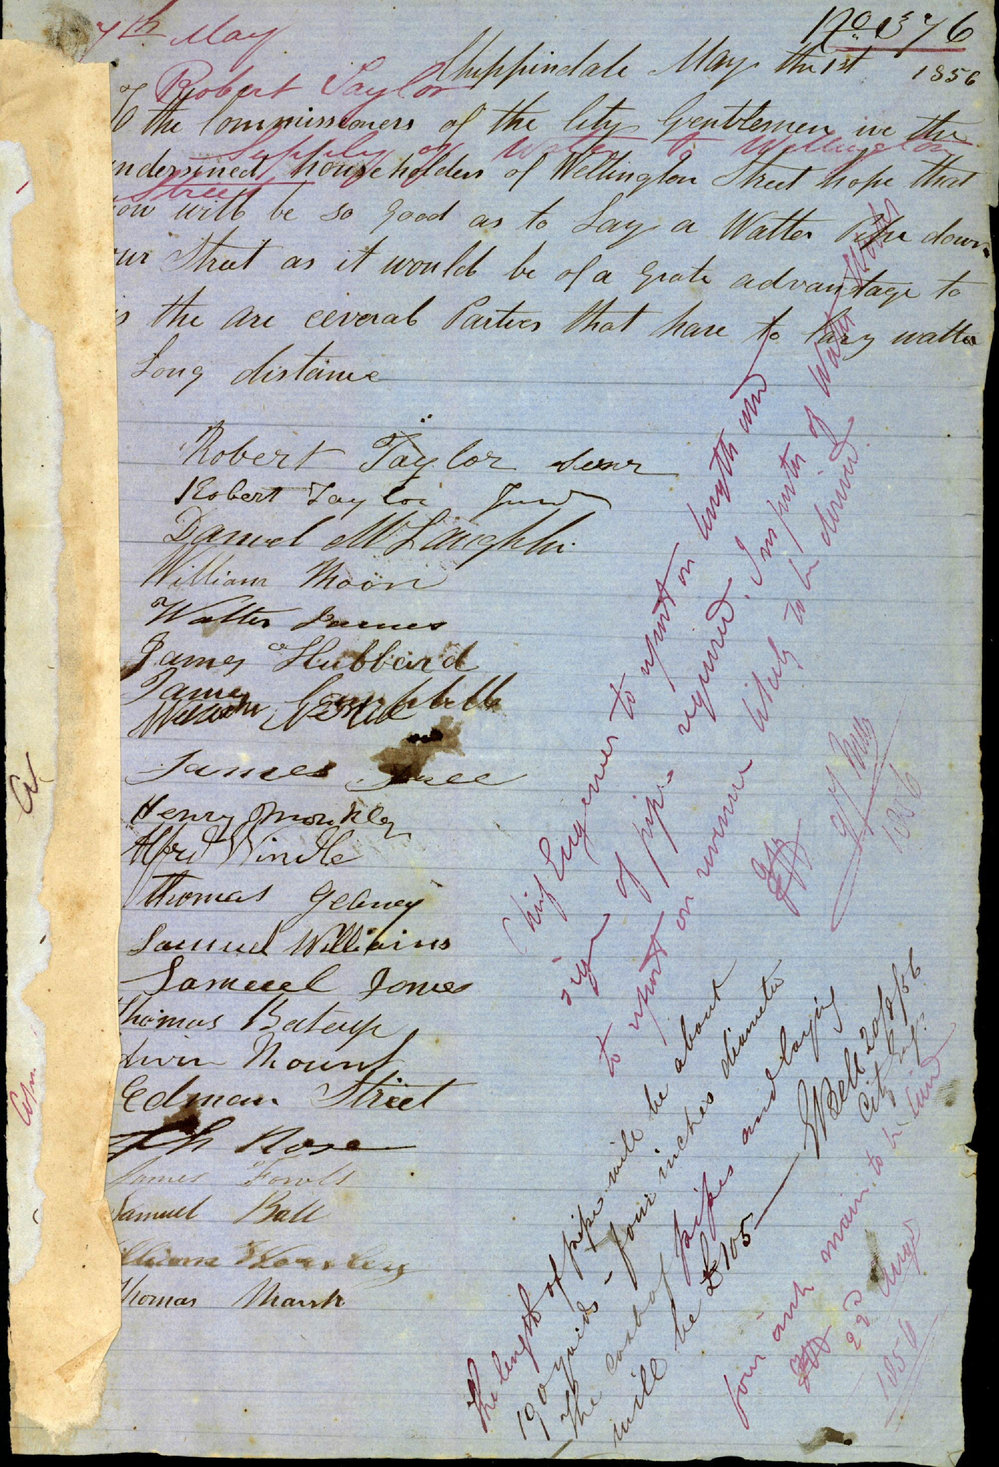 7th May
No 1376
Chippindale May the 1st 1856
Robert Taylor
To the Commissioners of the City Gentlemen we the
Supply of Water to Wellington
undersined householders of Wellington Street hope that
Street
you will be so good as to Lay a Watter Pipe down
our Street as it would be of a grate advantage to
us the are ceveral Parties that have to Cary watter
Long distance
Robert Taylor Senr
Robert Taylor Junr
Daniel McLaughlin
William Moon
Walter James
James Hubbard
James Campbell
James
Henry
Alfred Windle
Thomas Geaney
Samuel Williams
Samuel Jones
Thomas Batcup
dwin Mount
Edman Street
Rose
James Fowls
Samuel Ball
illiam
Thomas Marsh
Chief Engineer to report on length and
size of pipe required. Inspector of Water Works
to report on revenue likely to be derived
9/ May
1856
The length of pipe will be about
190 yards - four inches diameter
The cost of pipes and laying
will be £105 — EBell 20/8/56
City Engr
four inch main to be laid
22d Augt
1856